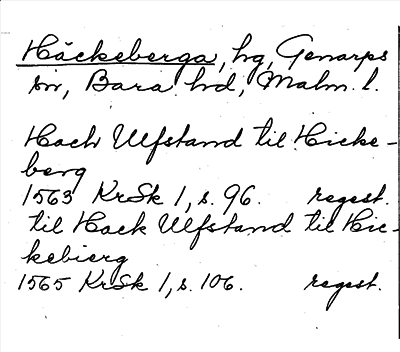 Häckeberga, hg, Genarps
sn, Bara hd, Malm. l.
Hack Ulfstand til Hicke-
berg
1563 KrSk 1, s. 96. regest.
til Hack Ulfstand til Hic-
kebierg
1565 KrSk 1, s. 106. regest.